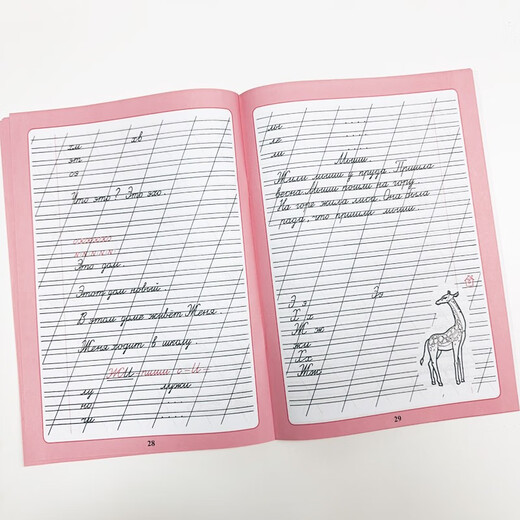 хм хв
эт
оэ
Что это? Это эхо.
Это дом.
Этот дом новый.
В этом доме живёт Женя.
Женя ходит в школу.
ЖИ пиши с И
лу лужи
но
чи ....
28
мы ....
ле ....
ли ....
Мыши.
Жили мыши у пруда. Пришла
весна. Мыши пошли на гору.
На горе жила лиса. Она была
рада, что пришли мыши.
Э э Ээ
Х х
Ж ж
жи
Хх
Жж
29